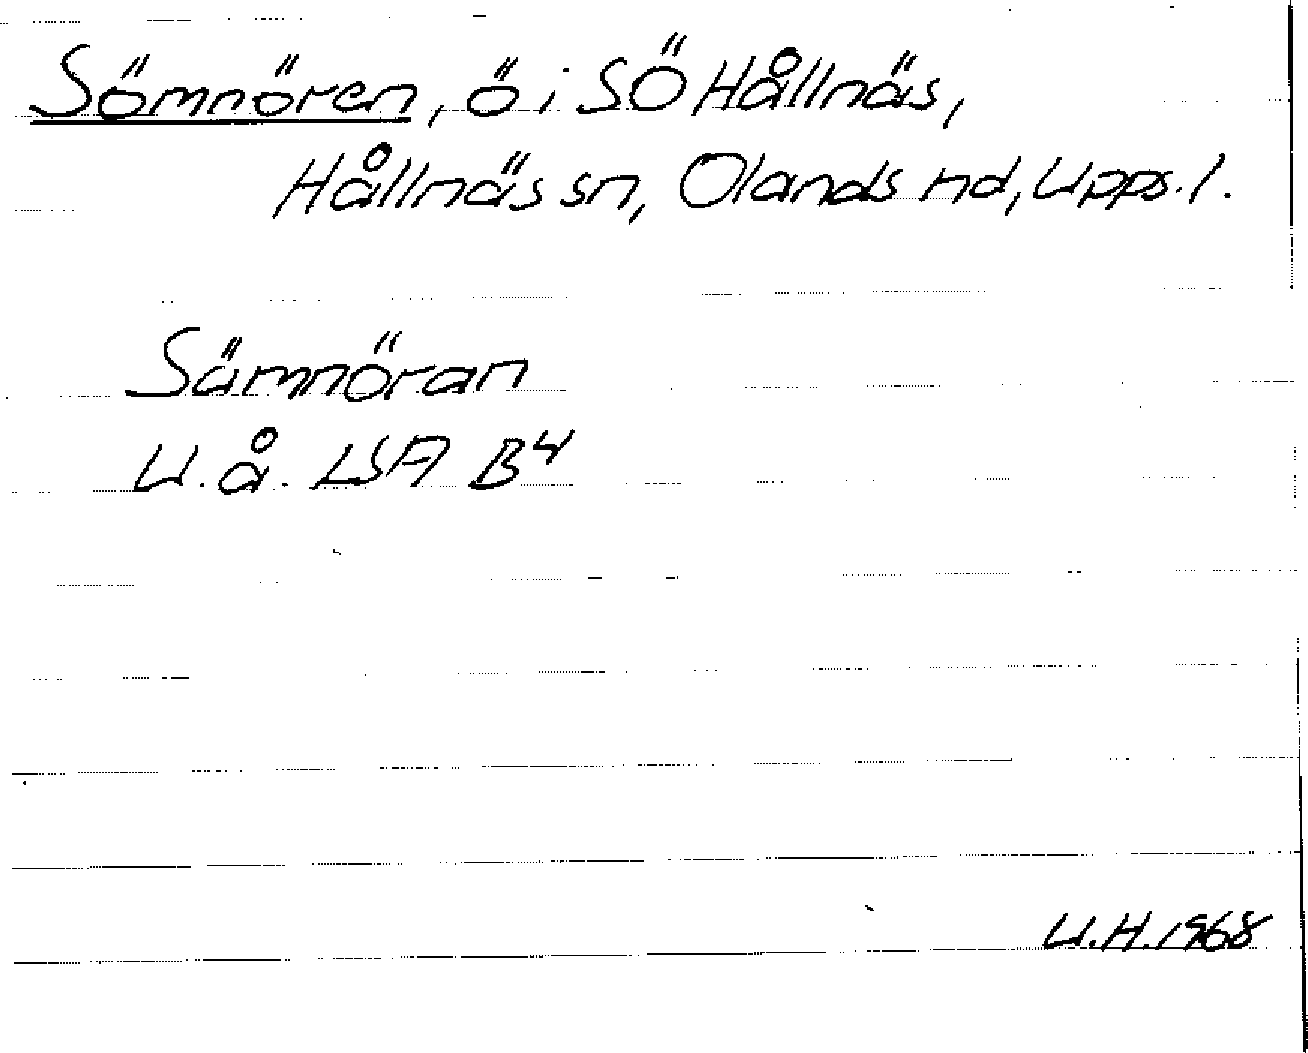 Sömnören, ö i SÖ Hållnäs,
Hållnäs sn, Olands hd, Upps. l.
Sämnöran
U.å. LSA B4
U.H. 1968